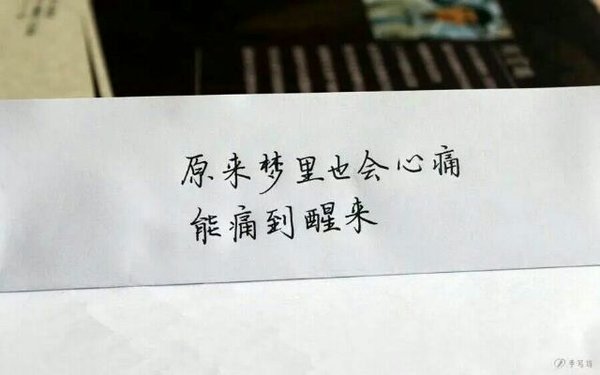 原来梦里也会心痛
能痛到醒来
手写坊